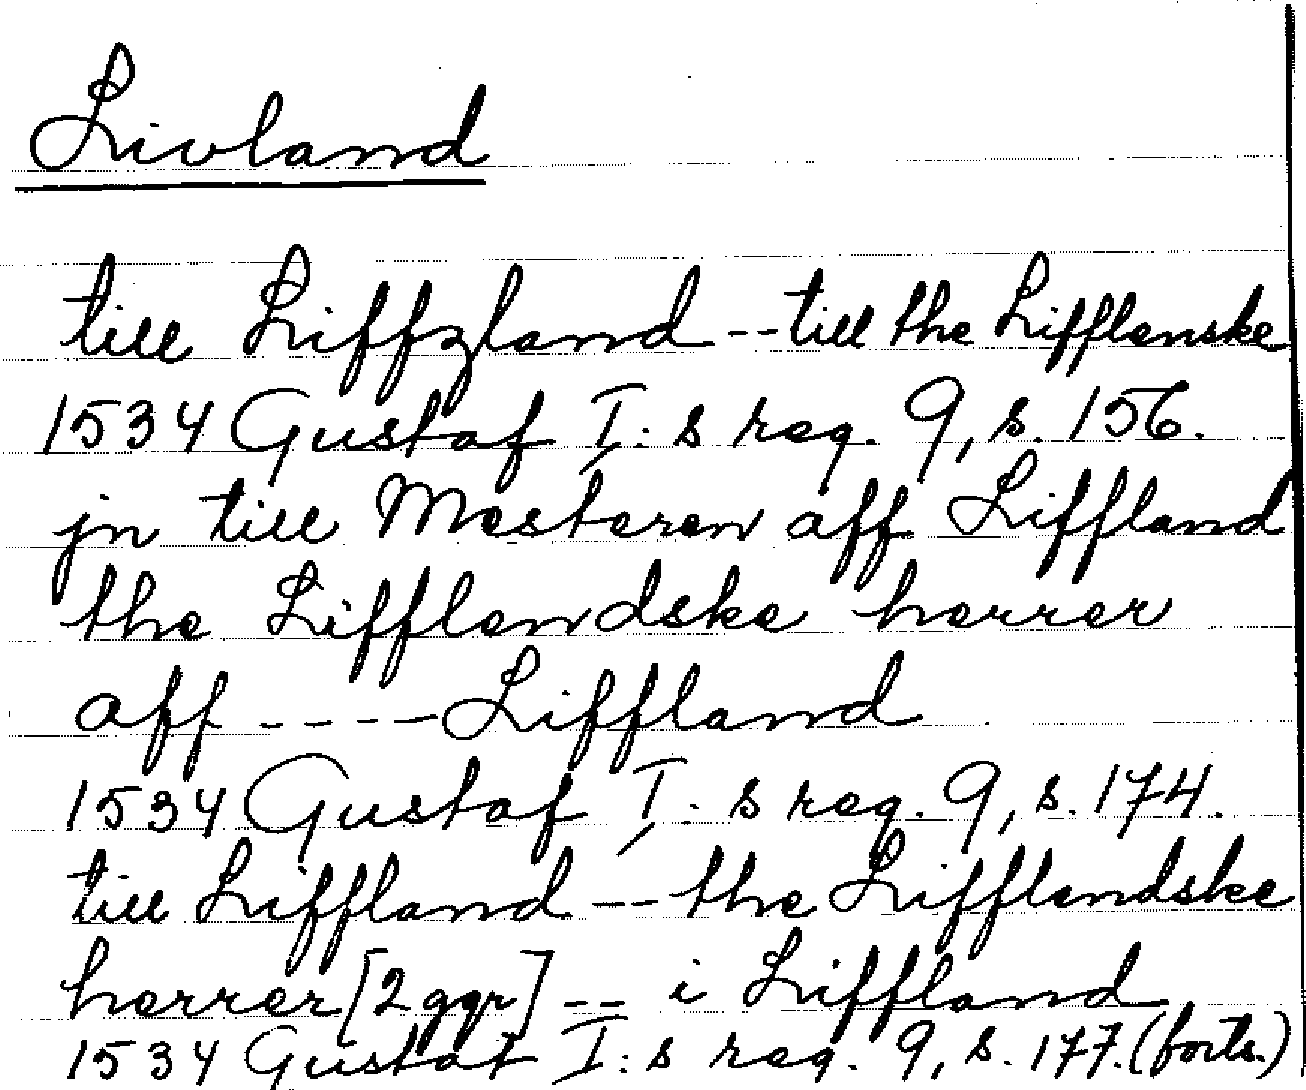 Livland
till Liffzland -- till the Lifflenske
1534 Gustaf I:s reg. 9, s. 156.
jn till Mesteren aff Liffland
the Lifflendske herrer
aff ---- Liffland
1534 Gustaf I:s reg. 9, s. 174.
till Liffland -- the Lifflendske
herrer [2 ggr] -- i Liffland
1534 Gustaf I:s reg. 9, s. 177. (forts.)